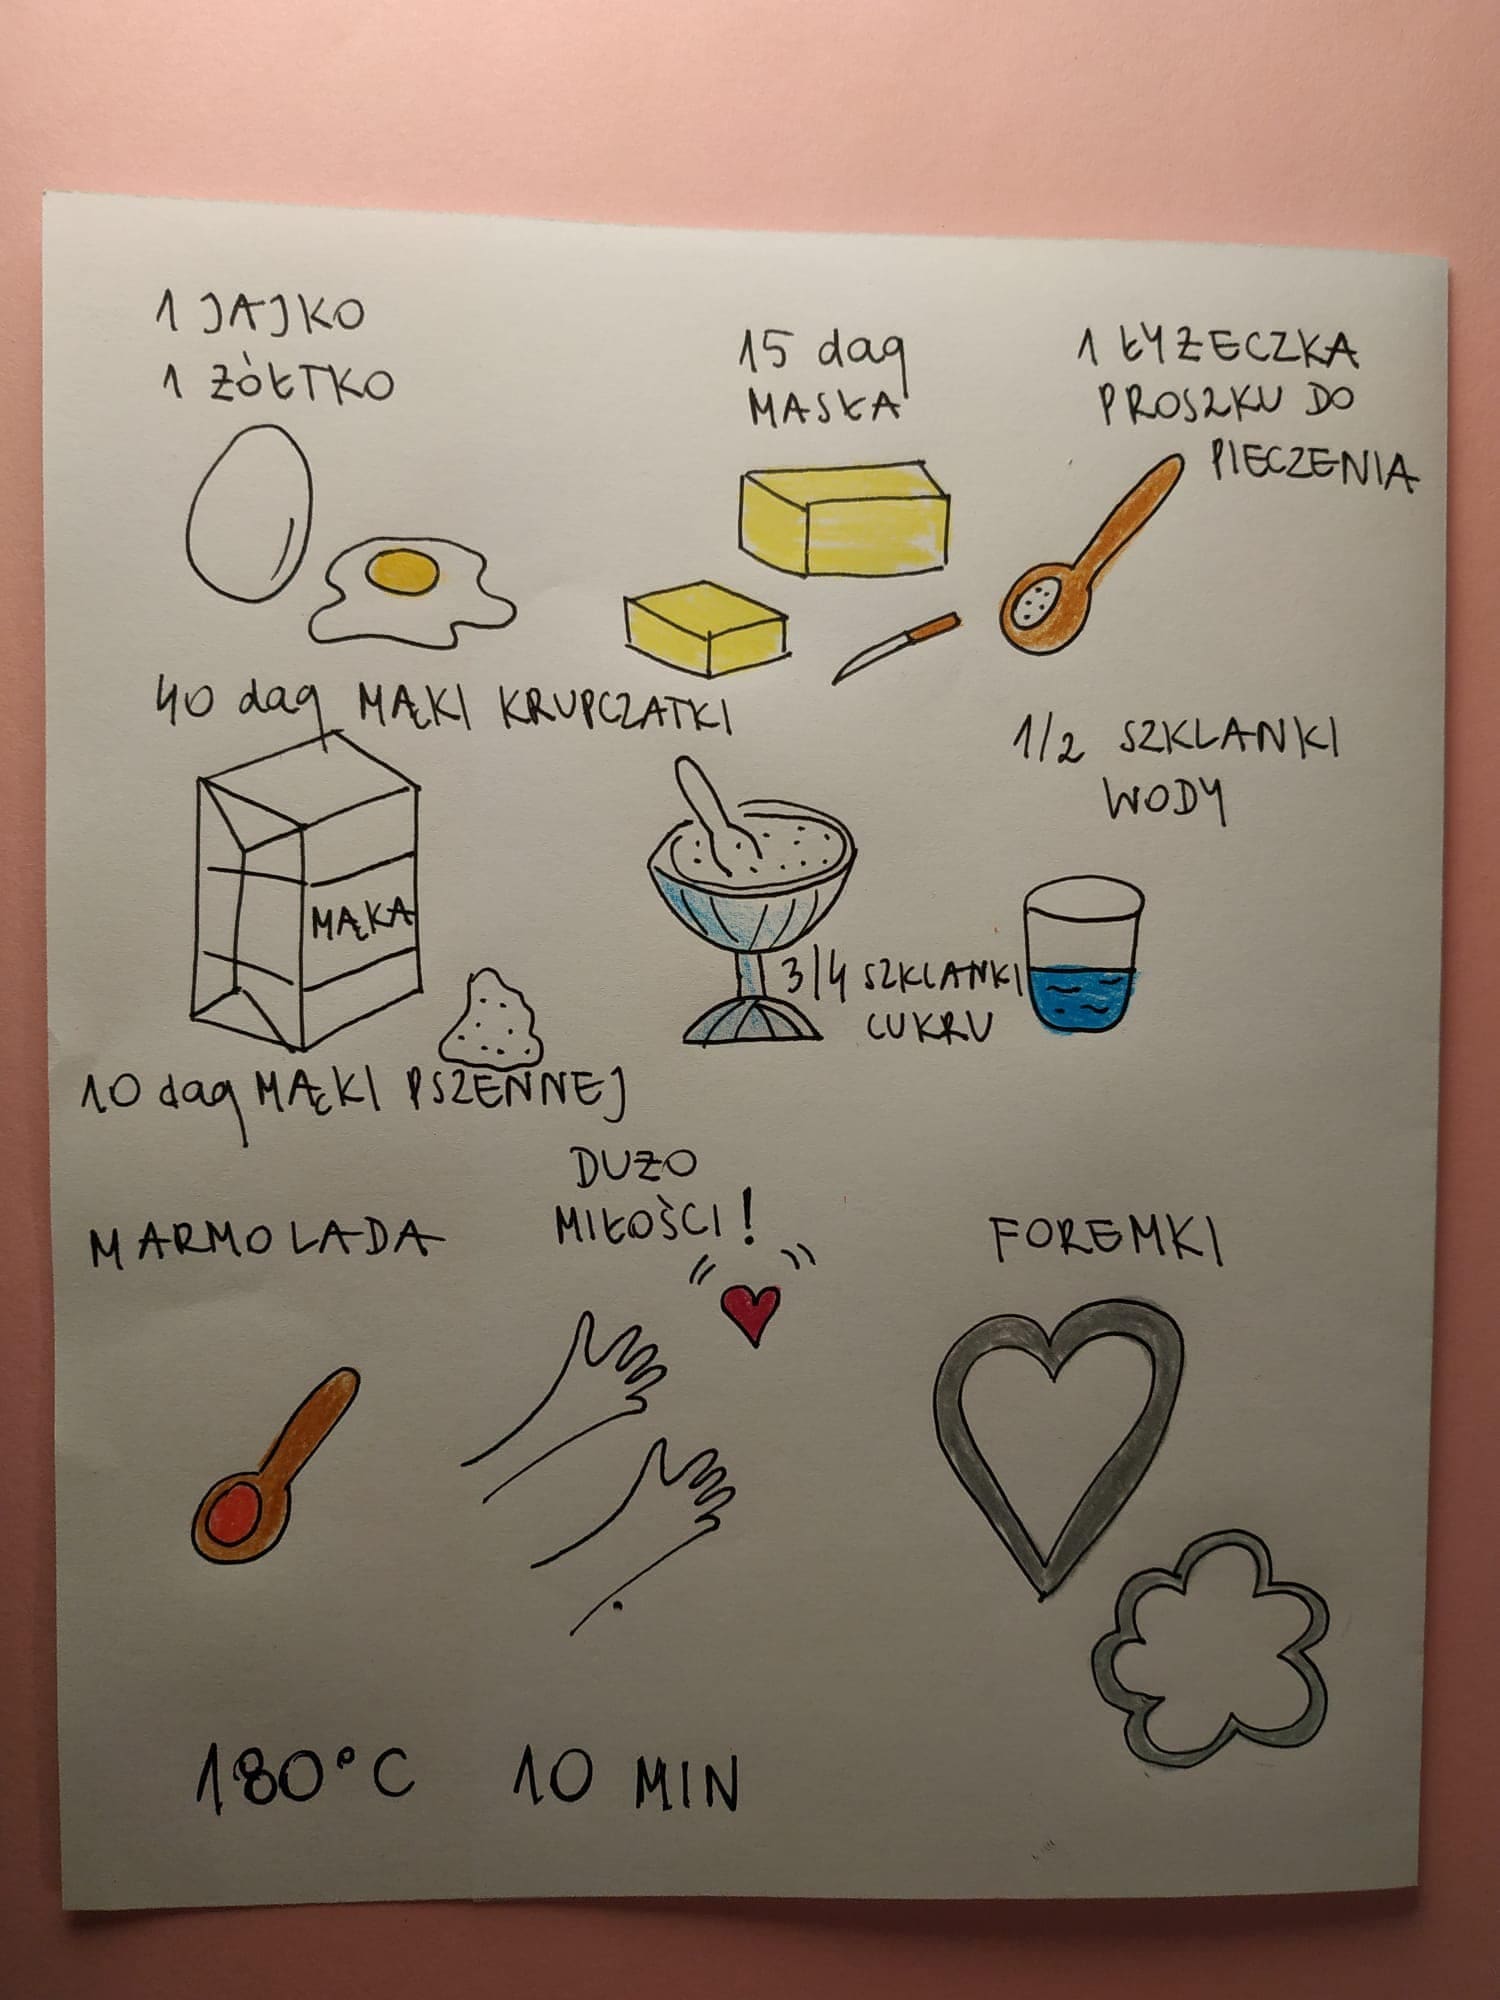 1 JAJKO
1 ŻÓŁTKO
15 dag
MASŁA
1 ŁYŻECZKA
PROSZKU DO
PIECZENIA
40 dag MĄKI KRUPCZATKI
1/2 SZKLANKI
WODY
MĄKA
3/4 SZKLANKI
CUKRU
10 dag MĄKI PSZENNEJ
MARMOLADA
DUŻO
MIŁOŚCI!
FOREMKI
180°C 10 MIN